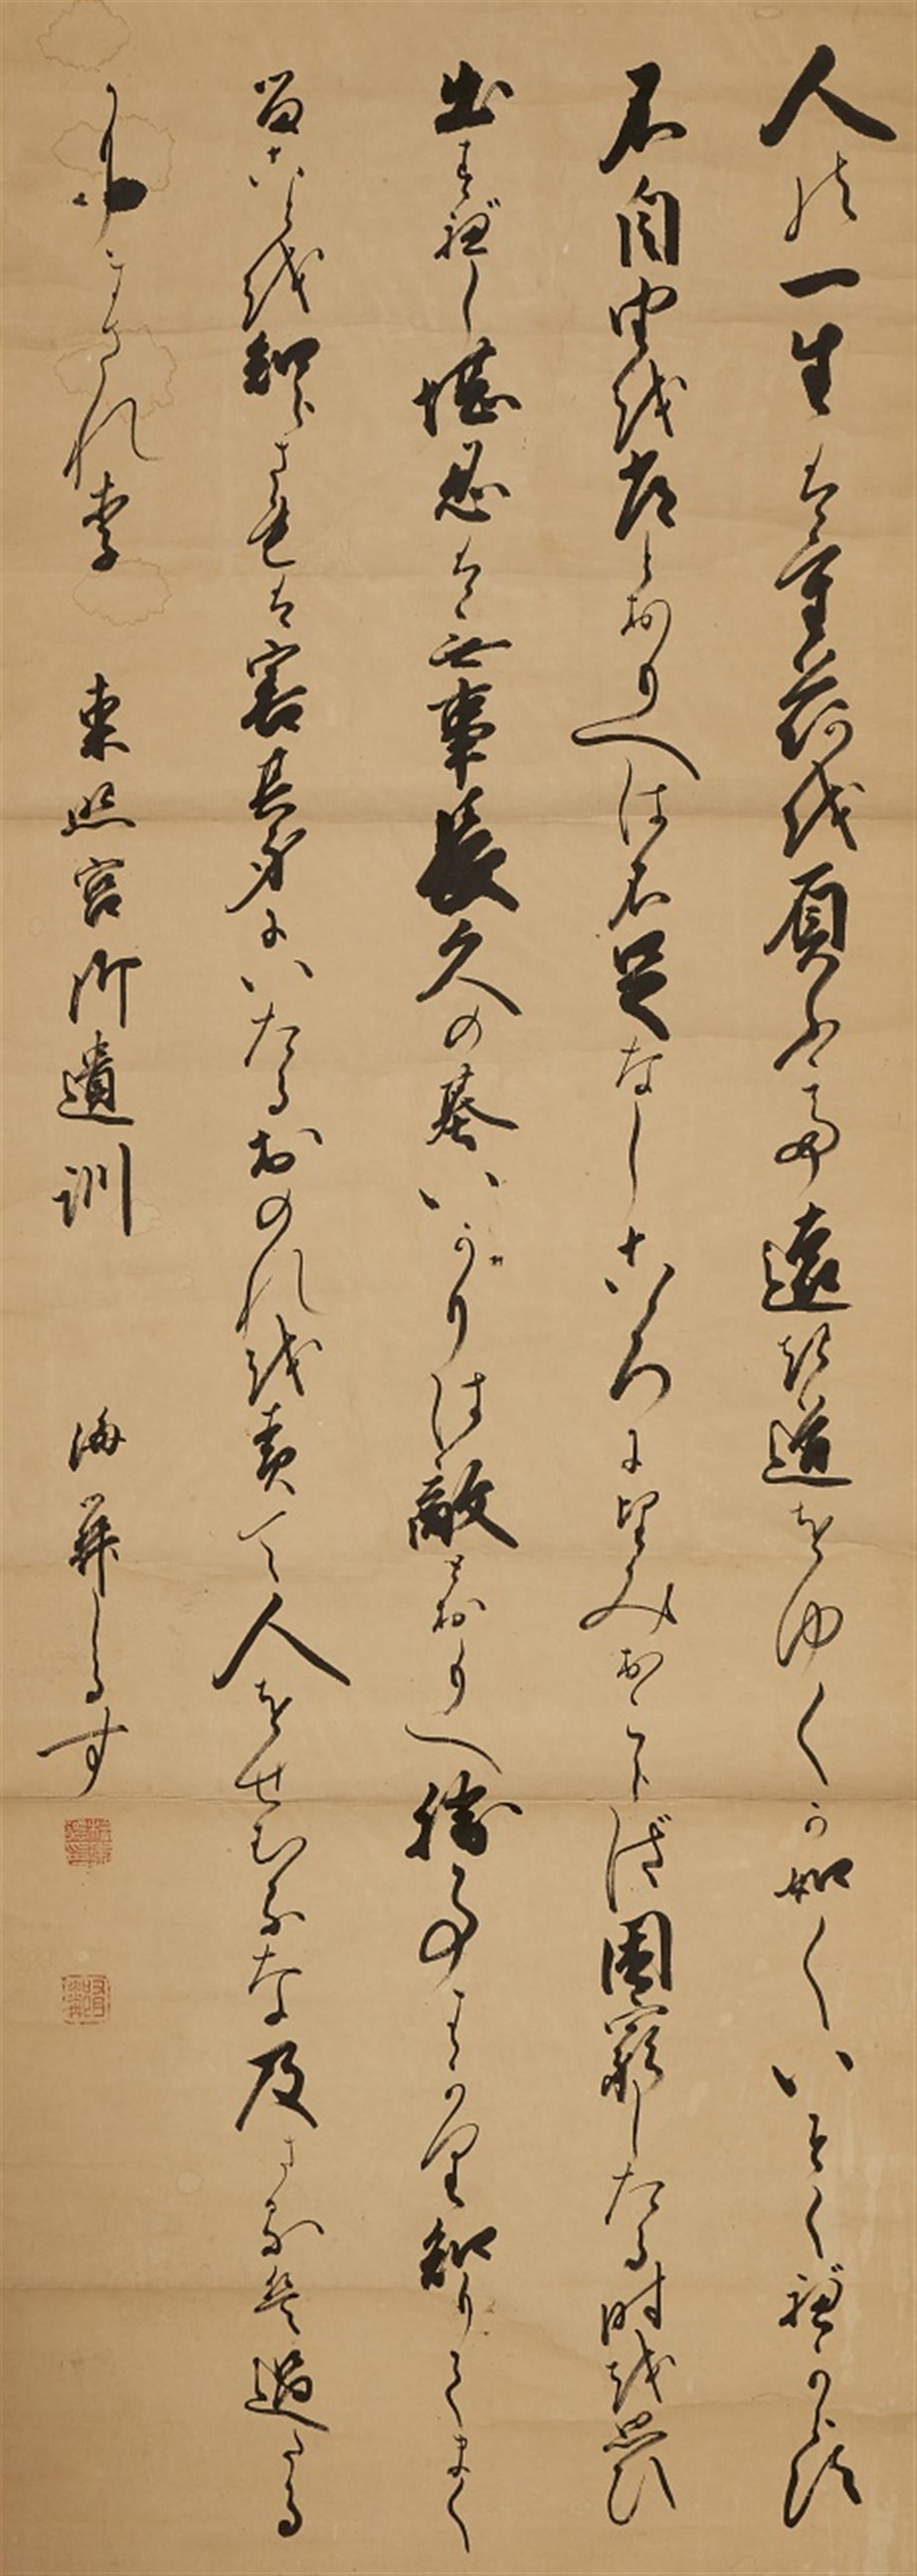 人の一生は重荷を負ふて遠き道をゆくか如くいそくべからず
不自由を常とおもへは不足なしこゝろに望みおこらば困窮したる時を思ひ
出すべし堪忍は無事長久の基いかりは敵とおもへ勝事はかり知りてまく
ることを知らされは害其身にいたるおのれを責て人をせむるな及さるは過たる
よりまされり 東照宮御遺訓 海しるす